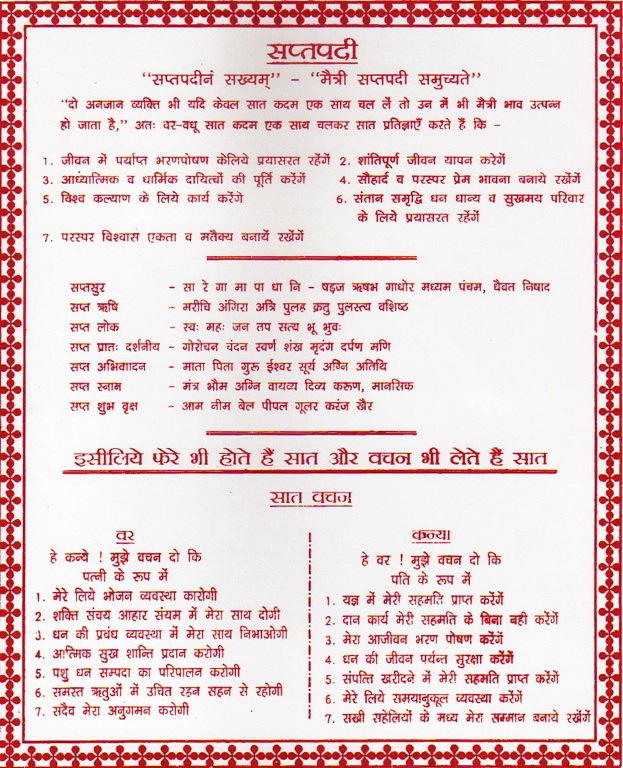 सप्तपदी
“सप्तपदीनं सख्यम्” – “मैत्री सप्तपदी समुच्यते”
“दो अनजान व्यक्ति भी यदि केवल सात कदम एक साथ चल लें तो उन में भी मैत्री भाव उत्पन्न
हो जाता है,” अतः वर-वधू सात कदम एक साथ चलकर सात प्रतिज्ञाएँ करते हैं कि –
1. जीवन में पर्याप्त भरणपोषण केलिये प्रयासरत रहेंगें
2. शांतिपूर्ण जीवन यापन करेगें
3. आध्यात्मिक व धार्मिक दायित्वों की पूर्ति करेंगें
4. सौहार्द व परस्पर प्रेम भावना बनाये रखेंगें
5. विश्व कल्याण के लिये कार्य करेंगे
6. संतान समृद्धि धन धान्य व सुखमय परिवार
के लिये प्रयासरत रहेंगें
7. परस्पर विश्वास एकता व मतैक्य बनायें रखेंगें
सप्तसुर – सा रे गा मा पा धा नि – षड्ज ऋषभ गाधोर मध्यम पंचम, धैवत निषाद
सप्त ऋषि – मरीचि अंगिरा अत्रि पुलह क्रतु पुलस्त्य वशिष्ठ
सप्त लोक – स्वः महः जन तप सत्य भू भुवः
सप्त प्रातः दर्शनीय – गोरोचन चंदन स्वर्ण शंख मृदंग दर्पण मणि
सप्त अभिवादन – माता पिता गुरू ईश्वर सूर्य अग्नि अतिथि
सप्त स्नान – मंत्र भौम अग्नि वायव्य दिव्य करूण, मानसिक
सप्त शुभ वृक्ष – आम नीम बेल पीपल गूलर करंज खैर
इसीलिये फेरे भी होते हैं सात और वचन भी लेते हैं सात
सात वचन
वर
हे कन्ये ! मुझे वचन दो कि
पत्नी के रूप में
1. मेरे लिये भोजन व्यवस्था कारोगी
2. शक्ति संचय आहार संयम में मेरा साथ दोगी
3. धन की प्रबंध व्यवस्था में मेरा साथ निभाओगी
4. आत्मिक सुख शान्ति प्रदान करोगी
5. पशु धन सम्पदा का परिपालन करोगी
6. समस्त ऋतुओं में उचित रहन सहन से रहोगी
7. सदैव मेरा अनुगमन करोगी
कन्या
हे वर ! मुझे वचन दो कि
पति के रूप में
1. यज्ञ में मेरी सहमति प्राप्त करेंगें
2. दान कार्य मेरी सहमति के बिना नही करेंगें
3. मेरा आजीवन भरण पोषण करेंगें
4. धन की जीवन पर्यन्त सुरक्षा करेंगें
5. संपत्ति खरीदने में मेरी सहमति प्राप्त करेंगें
6. मेरे लिये समयानुकूल व्यवस्था करेंगें
7. सखी सहेलियों के मध्य मेरा सम्मान बनाये रखेंगें